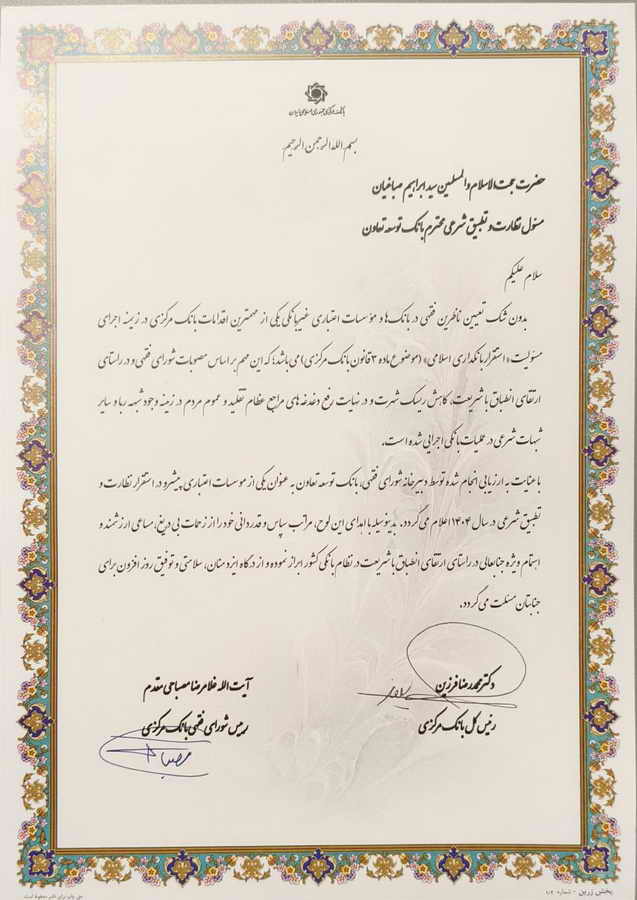 بانک مرکزی جمهوری اسلامی ایران
بسم الله الرحمن الرحیم
حضرت حجت الاسلام و المسلمین سید ابراهیم صباغیان
مسئول نظارت و تطبیق شرعی محترم بانک توسعه تعاون
سلام علیکم
بدون شک تعیین ناظرین فقهی در بانک ها و مؤسسات اعتباری غیربانکی یکی از مهمترین اقدامات بانک مرکزی در زمینه اجرای
مسئولیت «استقرار بانکداری اسلامی» (موضوع ماده ۳ قانون بانک مرکزی) می باشد؛ که این مهم بر اساس مصوبات شورای فقهی و در راستای
ارتقای انطباق با شریعت، کاهش ریسک شهرت و در نهایت رفع دغدغه های مراجع عظام تقلید و عموم مردم در زمینه وجود شبهه ربا و سایر
شبهات شرعی در عملیات بانکی اجرایی شده است.
با عنایت به ارزیابی انجام شده توسط دبیرخانه شورای فقهی، بانک توسعه تعاون به عنوان یکی از موسسات اعتباری پیشرو در استقرار نظارت و
تطبیق شرعی در سال ۱۴۰۴ اعلام می گردد. بدینوسیله با اهدای این لوح، مراتب سپاس و قدردانی خود را از زحمات بی دریغ، مساعی ارزشمند و
اهتمام ویژه جنابعالی در راستای ارتقای انطباق با شریعت در نظام بانکی کشور ابراز نموده و از درگاه ایزد منان، سلامتی و توفیق روز افزون برای
جنابتان مسئلت می گردد.
دکتر محمدرضا فرزین
رئیس کل بانک مرکزی
آیت الله غلامرضا مصباحی مقدم
رییس شورای فقهی بانک مرکزی
پخش زرین - شماره
حق چاپ برای ناشر محفوظ است